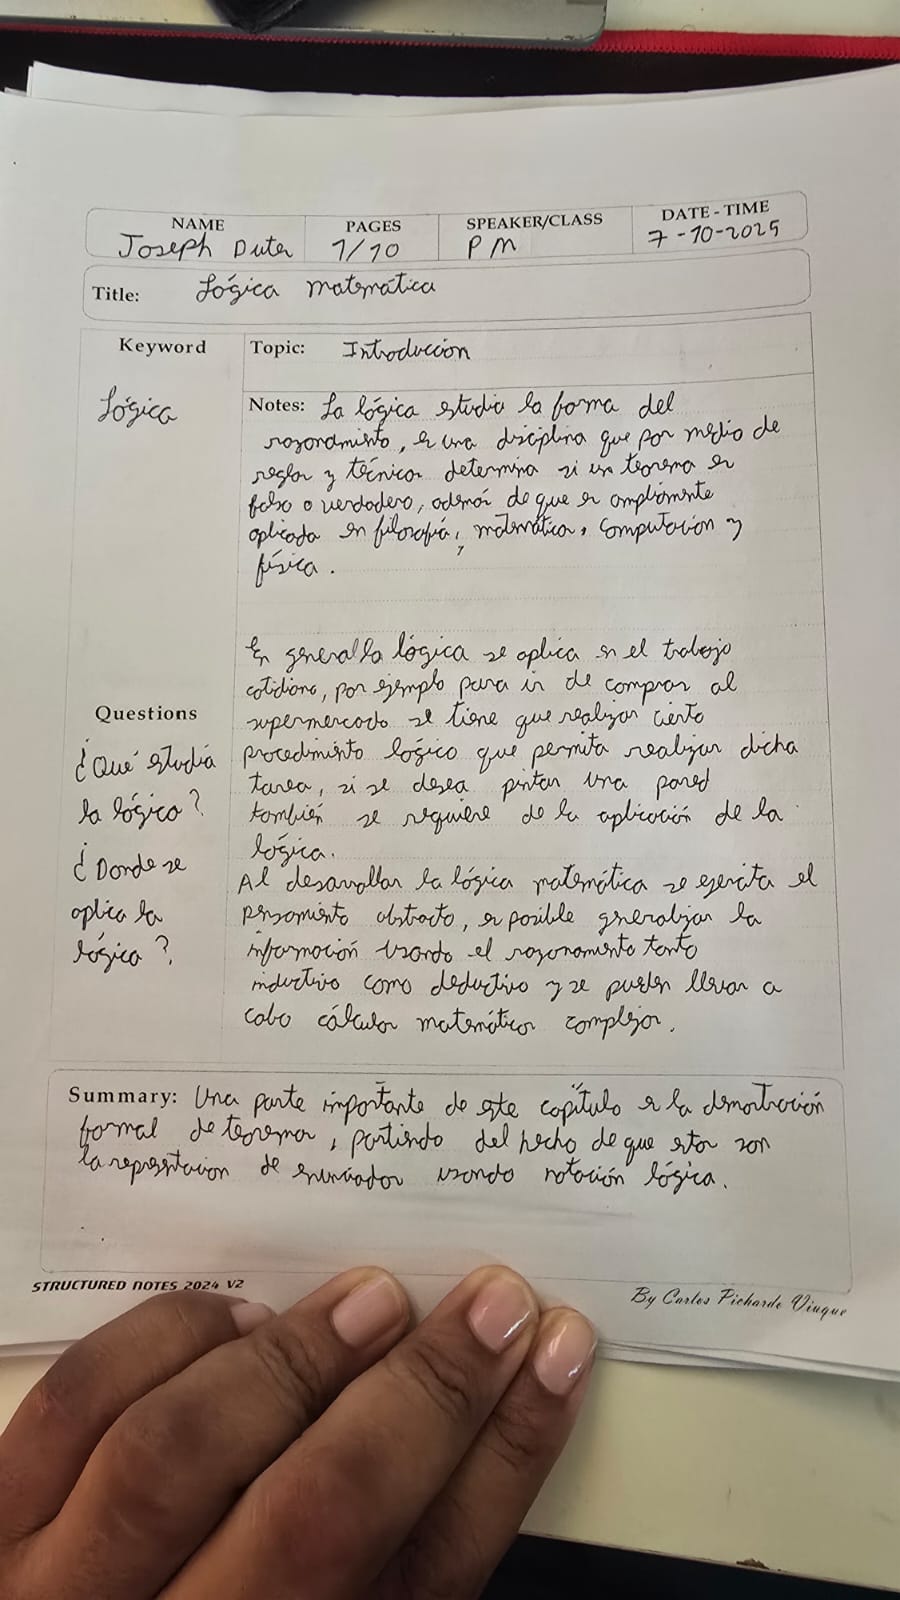 NAME PAGES SPEAKER/CLASS DATE - TIME
Joseph Duter 1/10 PM 7-10-2025
Title: Lógica matemática
Keyword
Lógica
Topic: Introduccion
Notes: La lógica estudia la forma del
razonamiento, es una disciplina que por medio de
reglas y técnicas determina si un teorema es
falso o verdadero, además de que es ampliamente
aplicada en filosofía, matemática, computacion y
física.
En general la lógica se aplica en el trabajo
cotidiano, por ejemplo para ir de compras al
supermercado se tiene que realizar cierto
procedimiento lógico que permita realizar dicha
tarea, si se desea pintar una pared
también se requiere de la aplicación de la
lógica.
Al desarrollar la lógica matemática se ejercita el
pensamiento abstracto, es posible generalizar la
información usando el razonamiento tanto
inductivo como deductivo y se pueden llevar a
cabo cálculos matemáticos complejos.
Questions
¿Qué estudia
la lógica?
¿Donde se
aplica la
lógica?
Summary: Una parte importante de este capítulo es la demostración
formal de teoremas, partiendo del hecho de que estos son
la representacion de enunciados usando notación lógica.
STRUCTURED NOTES 2024 V2
By Carlos Pichardo Viuque